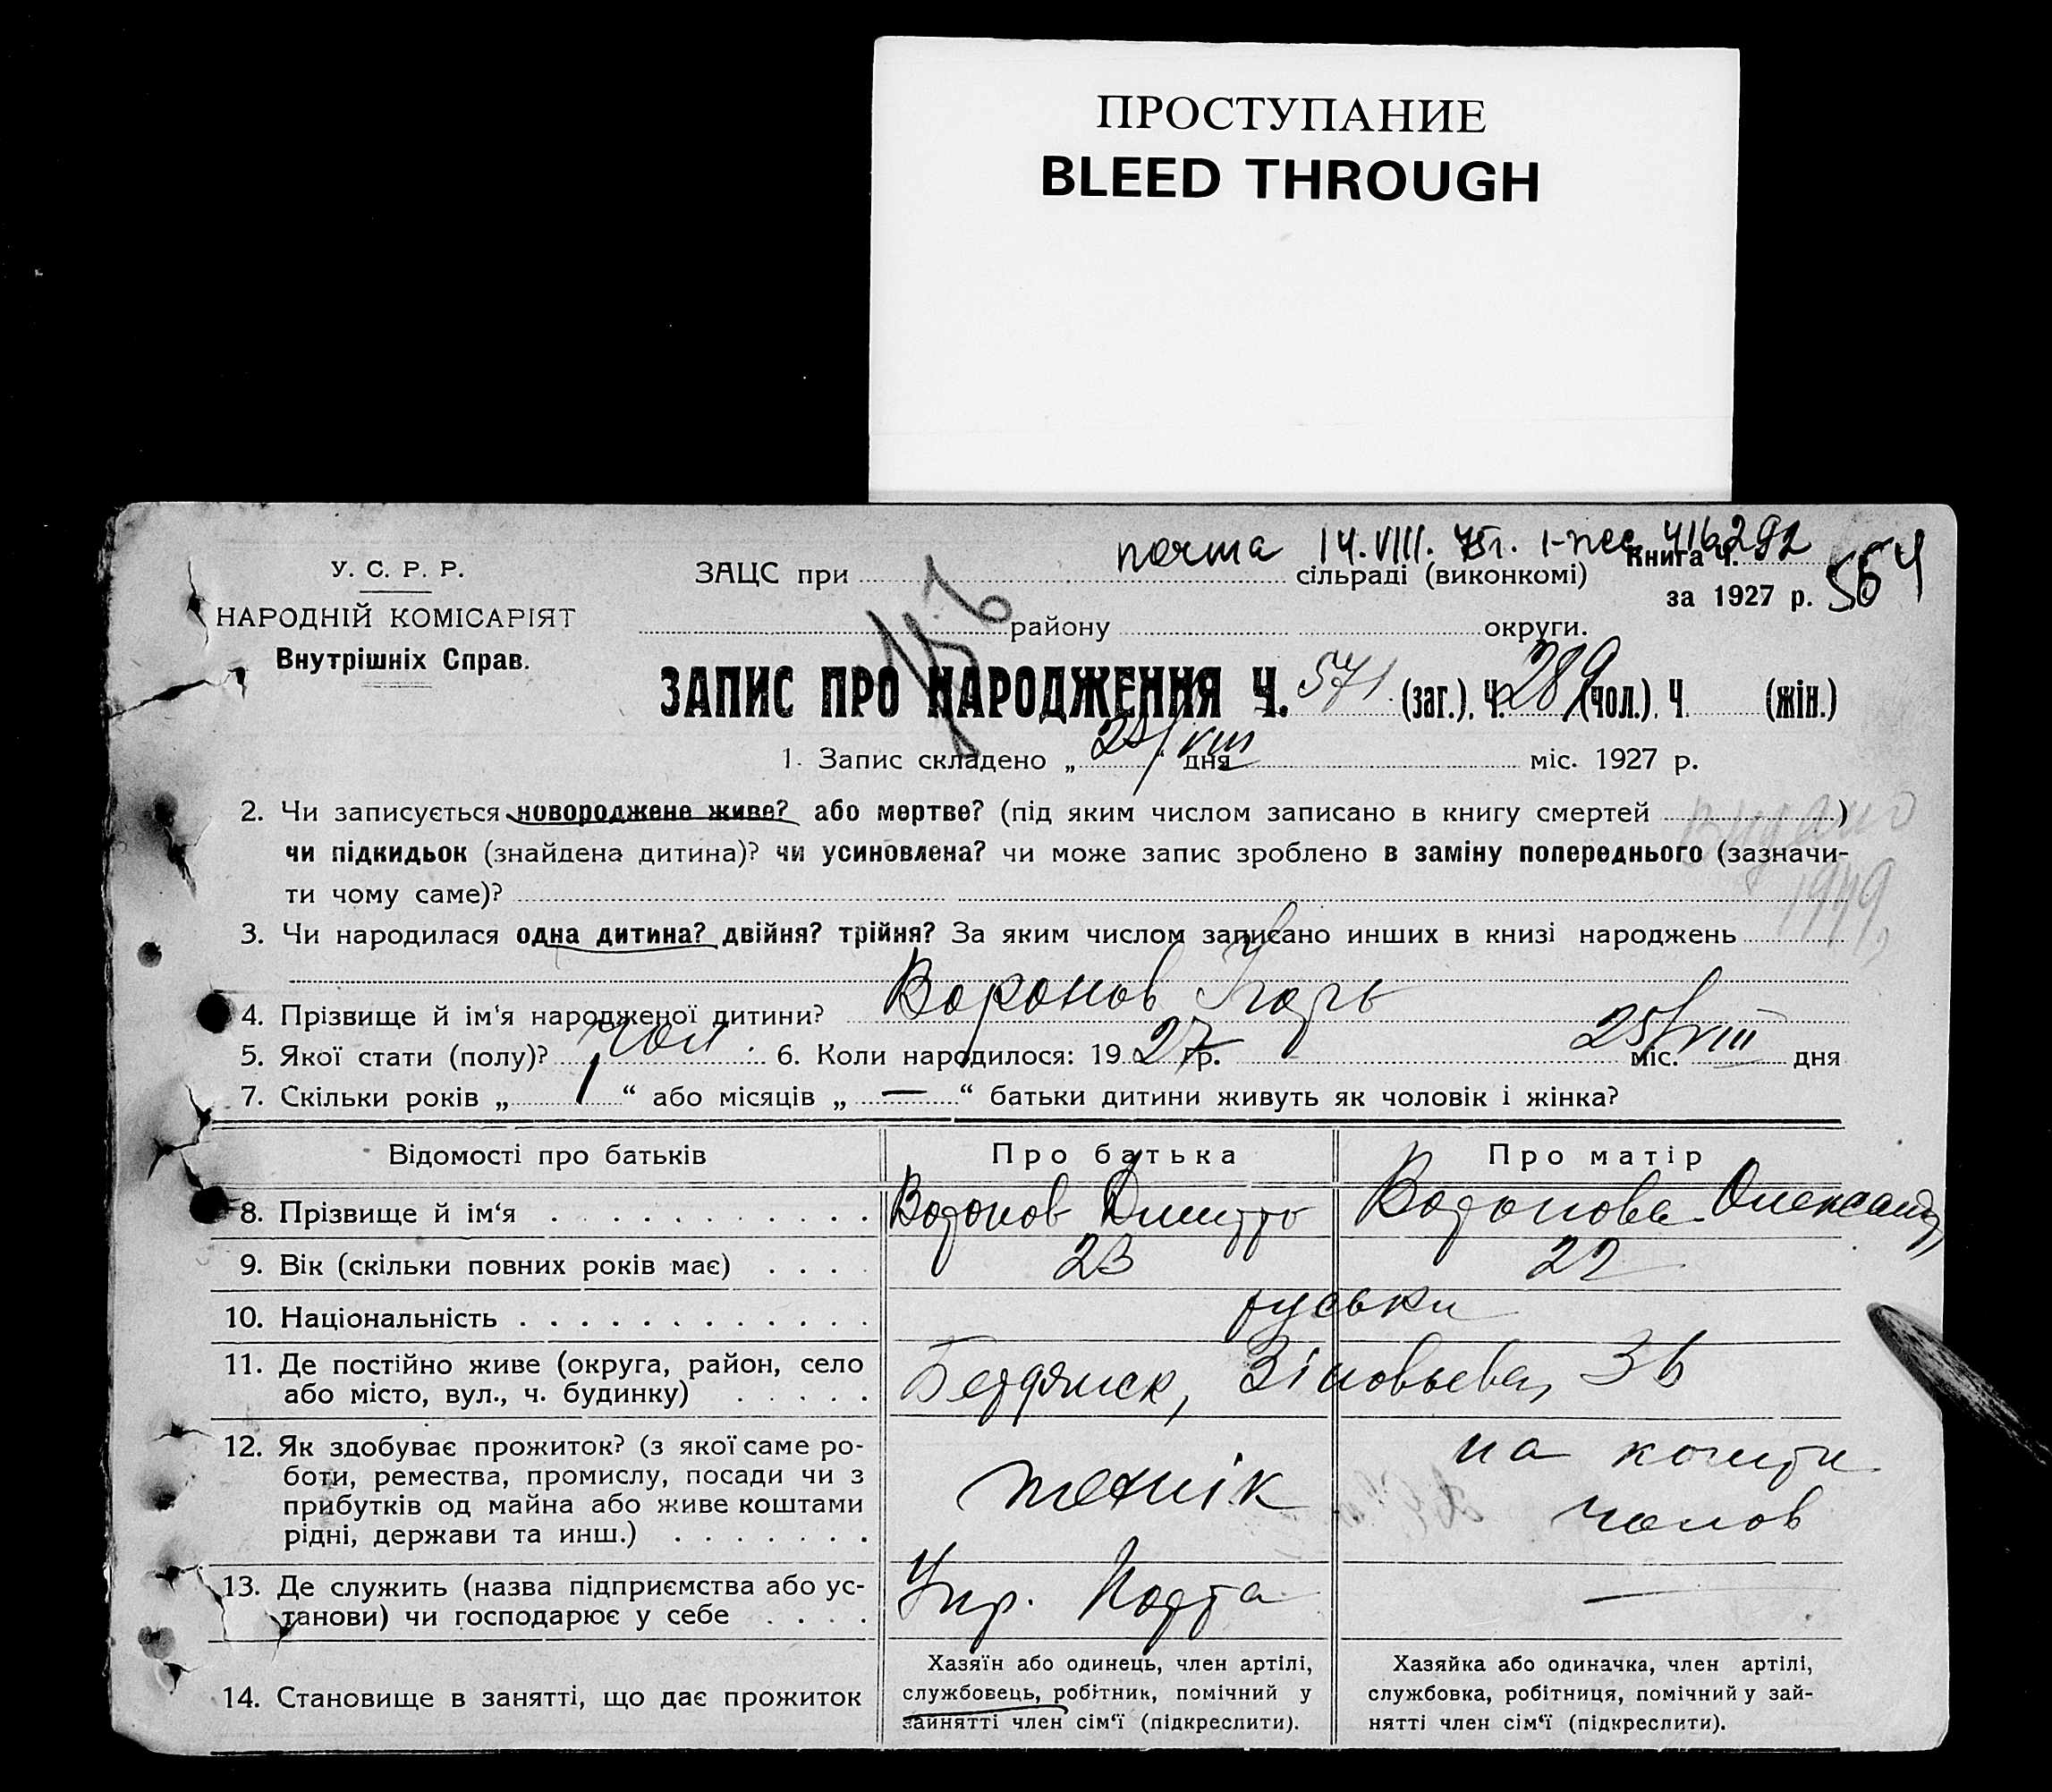 ПРОСТУПАНИЕ
BLEED THROUGH
почта 14.VIII.75г. 416292
У. С. Р. Р.
НАРОДНІЙ КОМІСАРІЯТ
Внутрішніх Справ.
ЗАЦС при сільраді (виконкомі) Книга Ч.
за 1927 р. 564
району округи.
ЗАПИС ПРО НАРОДЖЕННЯ Ч. 571 (заг.). Ч. 289 (чол.). Ч. (жін.)
1. Запис складено „ 29/VIII “ дня міс. 1927 р.
2. Чи записується новороджене живе? або мертве? (під яким числом записано в книгу смертей )
Видано
чи підкидьок (знайдена дитина)? чи усиновлена? чи може запис зроблено в заміну попереднього (зазначи-
ти чому саме)?
1949
3. Чи народилася одна дитина? двійня? трійня? За яким числом записано инших в книзі народжень
4. Прізвище й ім'я народженої дитини? Воронов Ігорь
5. Якої стати (полу)? чол. 6. Коли народилося: 1927 р. 25/VIII міс. дня
7. Скільки років „ 1 “ або місяців „ — “ батьки дитини живуть як чоловік і жінка?
Відомості про батьків Про батька Про матір
8. Прізвище й ім‘я Воронов Дмитро Воронова Олександ
9. Вік (скільки повних років має) 23 22
10. Національність руськи
11. Де постійно живе (округа, район, село
або місто, вул., ч. будинку) Бердянск, Зіновьева, 36
12. Як здобуває прожиток? (з якої саме ро-
боти, ремества, промислу, посади чи з
прибутків од майна або живе коштами
рідні, держави та инш.) технік на кошти
чолов
13. Де служить (назва підприємства або ус-
танови) чи господарює у себе Упр. Порта —
14. Становище в занятті, що дає прожиток
Хазяїн або одинець, член артілі,
службовець, робітник, помічний у
зайнятті член сім‘ї (підкреслити).
Хазяйка або одиначка, член артілі,
службовка, робітниця, помічний у зай-
нятті член сім‘ї (підкреслити).